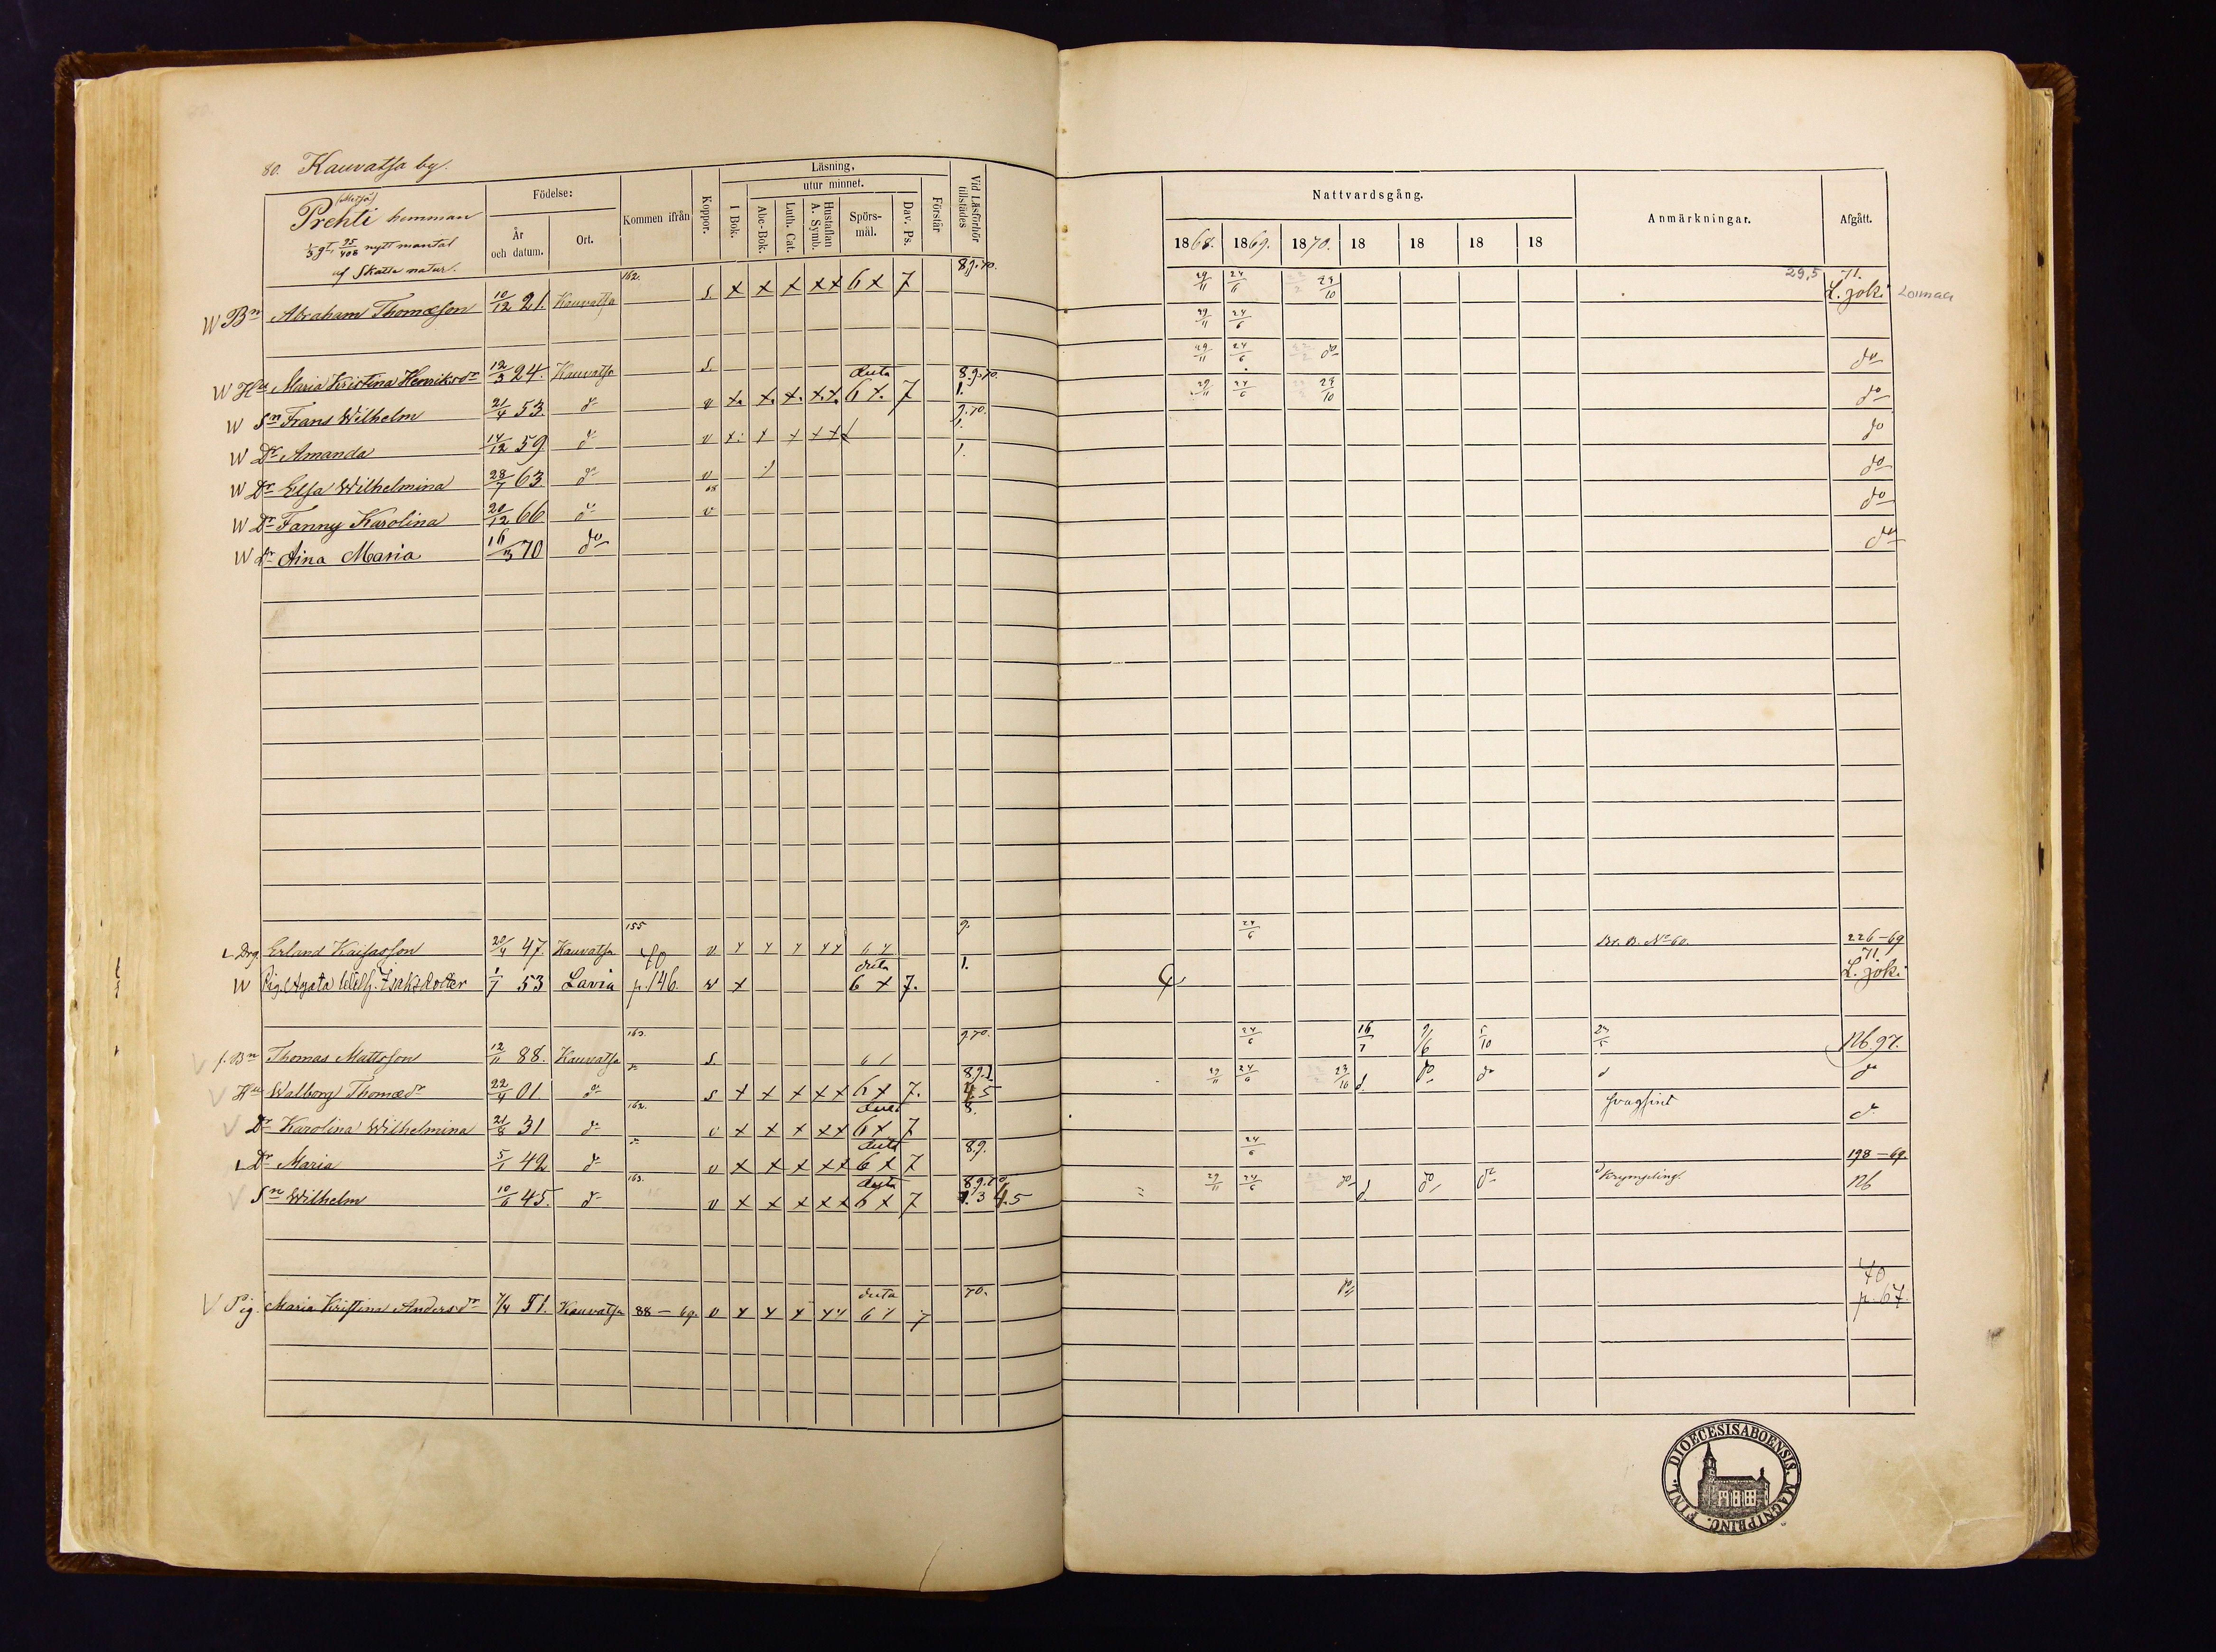 80. Kauvatsa by.
Prehti hemman
1/3 gt, 95/408 nytt mantal
af Skatte natur.
Födelse:
År och datum.
Ort.
Kommen ifrån
Koppor.
Läsning.
I Bok.
utur minnet.
Abc-Bok.
Luth. Cat.
Hustaflan A. Symb.
Spörs-mål.
Dav. Ps.
Förstår
Vid Läsförhör tillstädes
Nattvardsgång.
1868. 1869. 1870. 18 18 18 18
Anmärkningar.
Afgått.
W Bn Abraham Thomæson 10/12 21. Kauvatsa 162. s x x x x x 6 x 7 8.9.70. 29/11 24/6 23/10 29,5 71. L. joki Loimaa
29/11 24/6
W Hu Maria Kristina Henriksdr 12/3 24. Kauvatsa s. 8.9.70. 29/11 24/6 do do
W Sn Frans Wilhelm 21/4 53. do v x. x. x. x. x. deta 6 x. 7 1. 29/11 24/6 23/10 do
W Dr Amanda 14/12 59 do v x x x x x 9.70. 1. do
W Dr Elsa Wilhelmina 28/7 63 do v 1. do
W Dr Fanny Karolina 20/12 66 do 68 v do
W Dr Aina Maria 16/3 70 do do
L Drg Erland Kaisasson 20/4 47. Kauvatsa 155 v. x x x x x 6 x 9. 24/6 Br. B. No 60. 226-69
W Pig. Agata Isaksdotter 1/7 53 Lavia 70 p. 146. w x deta 6 x 7. 1. 71 L. joki
V f. Bn Thomas Mattsson 12/11 88. Kauvatsa 163. s. 6 / 9.70. 24/6 16/7 9/6 5/10 Nb. 97.
V Hu Walborg Thomædr 22/4 01. do do s x x x x x 6 x 7. 8.9.1. 4 5 29/11 24/6 23/10 d. do do d do
V Dr Karolina Wilhelmina 21/8 31 do 162. v x x x x x deta 6 x 7 8. svagsint do
L Dr Maria 5/1 42 do do v x x x x x deta 6 x 7 8.9. 24/6 198-69.
V Sn Wilhelm 10/6 45. do 163. v x x x x x deta 6 x 7 8.9.70. 1. 3 4.5 29/11 24/6 do d. do do Krympling. Nb
V Pig. Maria Kristina Andersdr 7/4 51. Kauvatsa 88-69. v x x x x x deta 6 x 7 70. do 70 p. 67.
DIOECESIS ABOENSIS. MAGNI PRINC. FINL.